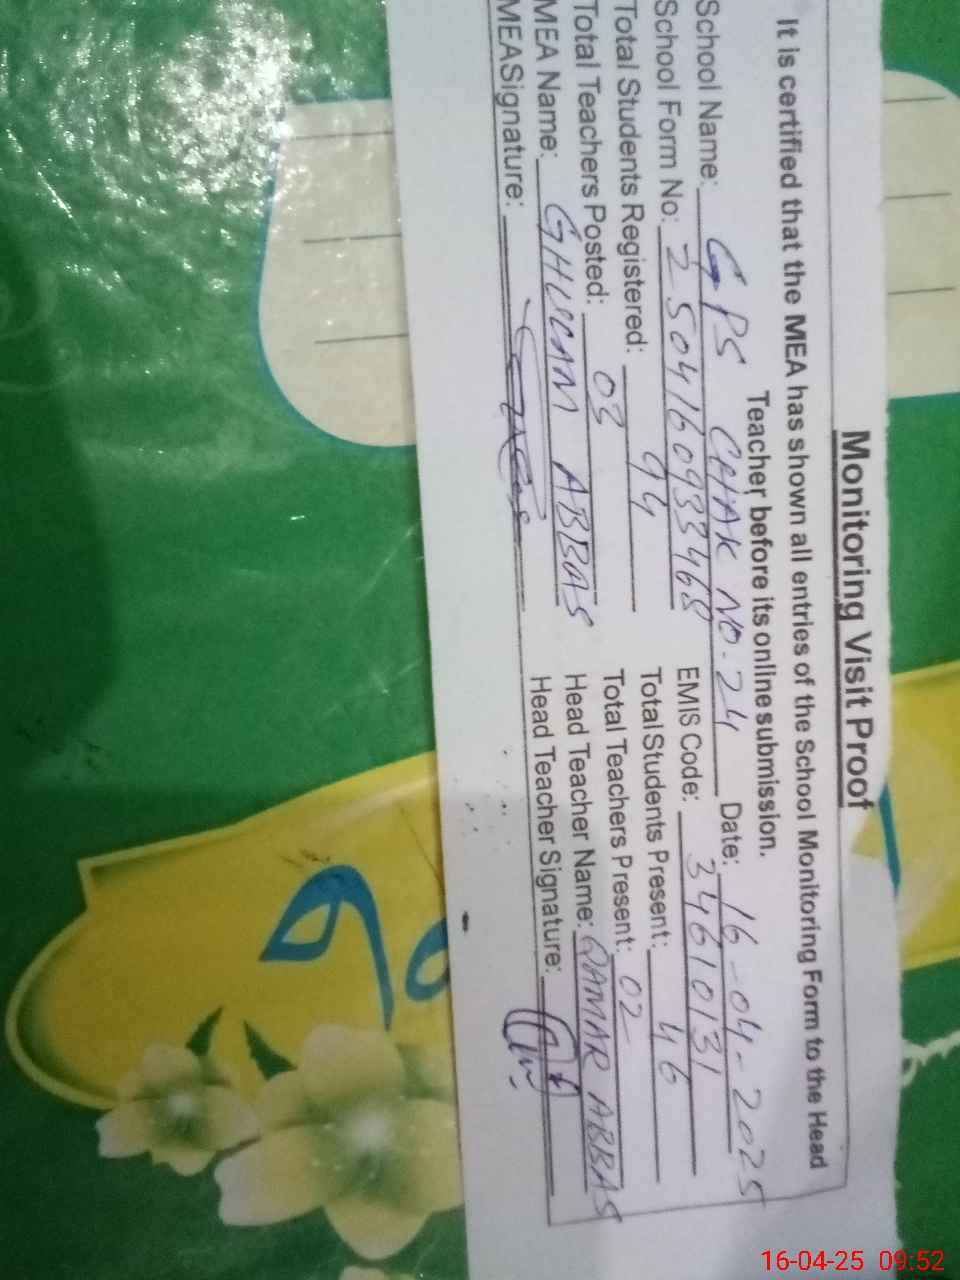 Monitoring Visit Proof
It is certified that the MEA has shown all entries of the School Monitoring Form to the Head
Teacher before its online submission.
School Name: GPS CHAK NO. 24 Date: 16-04-2025
School Form No: 2504160933468 EMIS Code: 34610131
Total Students Registered: 94 Total Students Present: 46
Total Teachers Posted: 03 Total Teachers Present: 02
MEA Name: GHULAM ABBAS Head Teacher Name: QAMAR ABBAS
MEASignature: Head Teacher Signature:
16-04-25 09:52